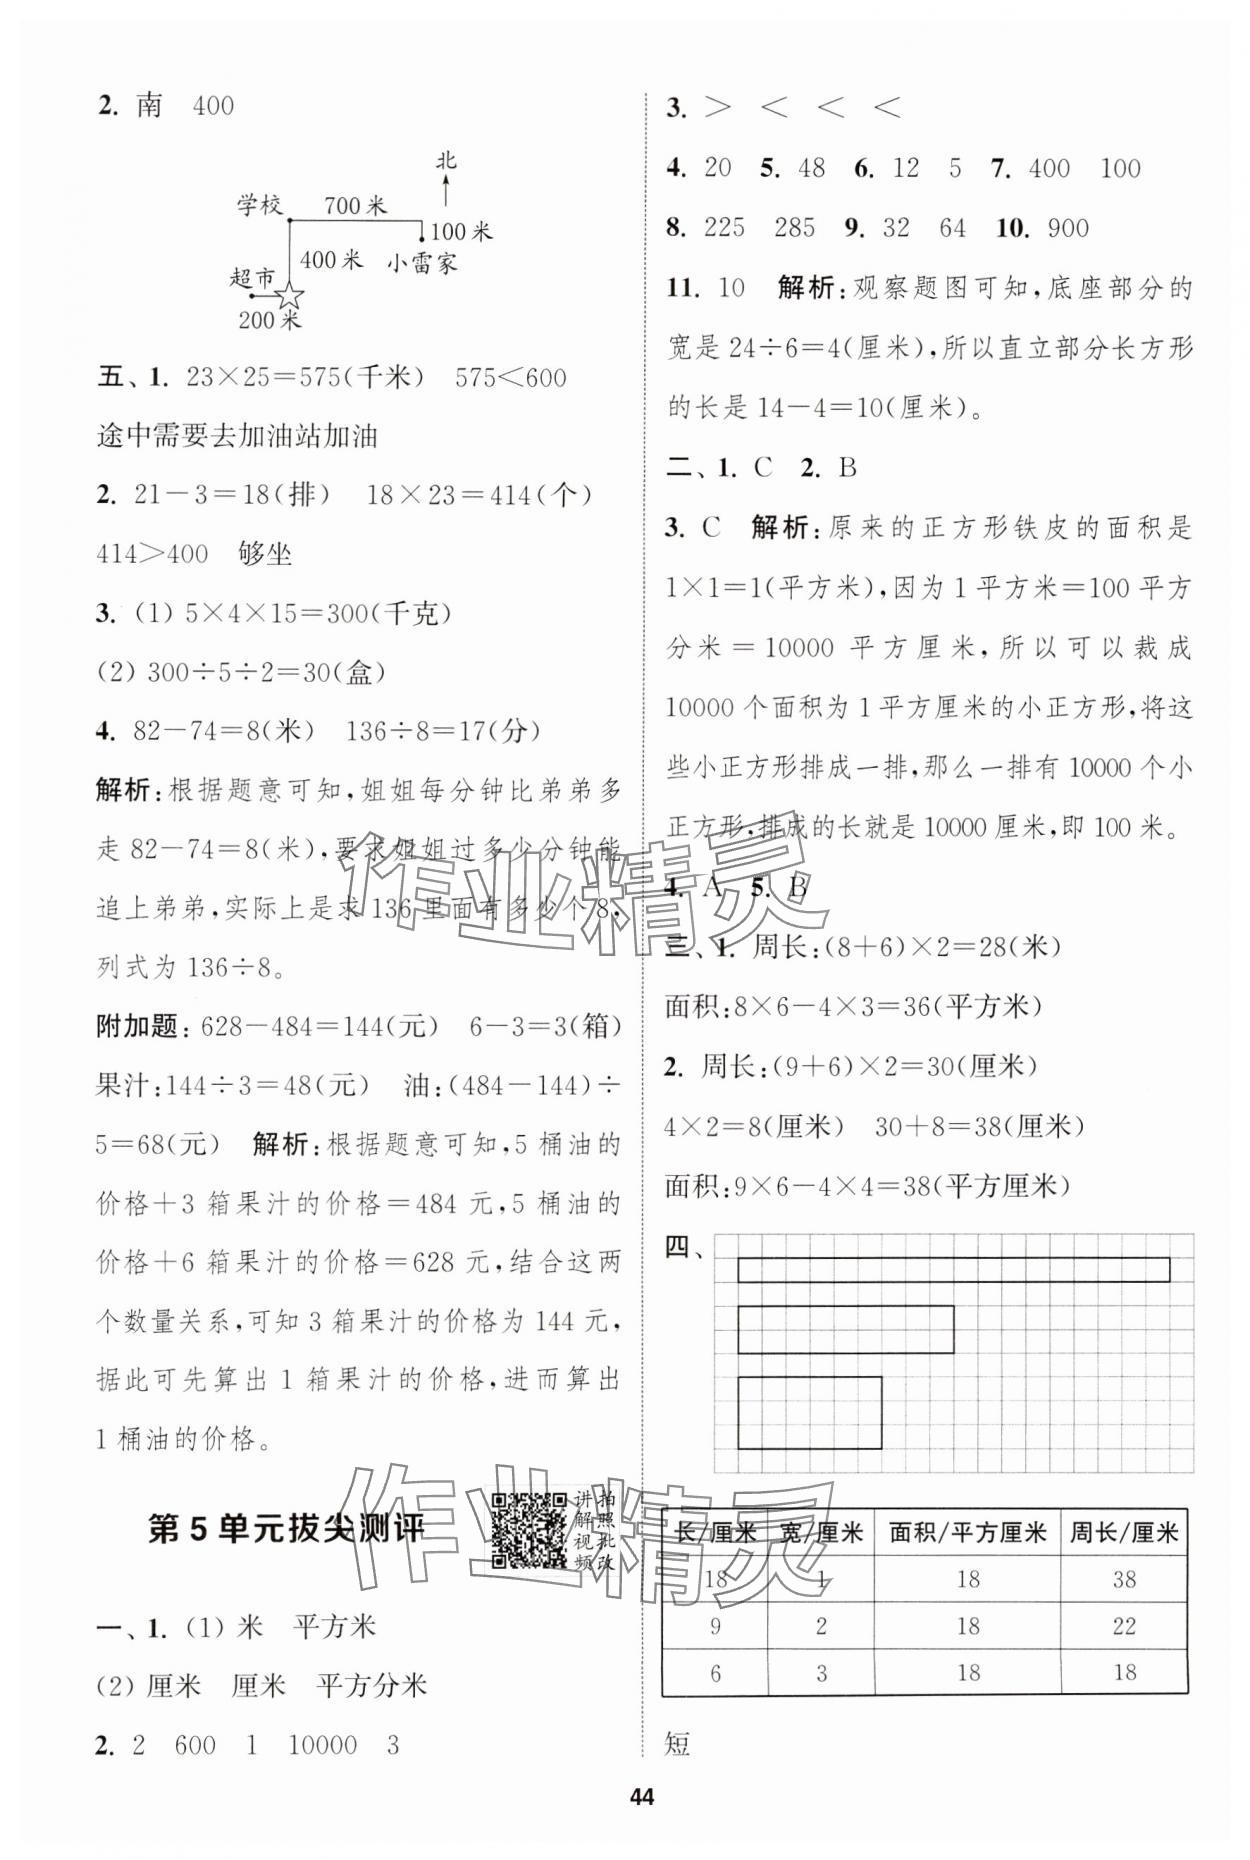 2. 南 400
北
学校 700米
100米
400米 小雷家
超市
200米
五、1. 23×25=575(千米) 575<600
途中需要去加油站加油
2. 21-3=18(排) 18×23=414(个)
414>400 够坐
3. (1) 5×4×15=300(千克)
(2) 300÷5÷2=30(盒)
4. 82-74=8(米) 136÷8=17(分)
解析:根据题意可知,姐姐每分钟比弟弟多
走82-74=8(米),要求姐姐过多少分钟能
追上弟弟,实际上是求136里面有多少个8,
列式为136÷8。
附加题:628-484=144(元) 6-3=3(箱)
果汁:144÷3=48(元) 油:(484-144)÷
5=68(元) 解析:根据题意可知,5桶油的
价格+3箱果汁的价格=484元,5桶油的
价格+6箱果汁的价格=628元,结合这两
个数量关系,可知3箱果汁的价格为144元,
据此可先算出1箱果汁的价格,进而算出
1桶油的价格。
第5单元拔尖测评
讲解视频
拍照批改
一、1. (1) 米 平方米
(2) 厘米 厘米 平方分米
2. 2 600 1 10000 3
3. > < < <
4. 20 5. 48 6. 12 5 7. 400 100
8. 225 285 9. 32 64 10. 900
11. 10 解析:观察题图可知,底座部分的
宽是24÷6=4(厘米),所以直立部分长方形
的长是14-4=10(厘米)。
二、1. C 2. B
3. C 解析:原来的正方形铁皮的面积是
1×1=1(平方米),因为1平方米=100平方
分米=10000平方厘米,所以可以裁成
10000个面积为1平方厘米的小正方形,将这
些小正方形排成一排,那么一排有10000个小
正方形,排成的长就是10000厘米,即100米。
4. A 5. B
三、1. 周长:(8+6)×2=28(米)
面积:8×6-4×3=36(平方米)
2. 周长:(9+6)×2=30(厘米)
4×2=8(厘米) 30+8=38(厘米)
面积:9×6-4×4=38(平方厘米)
四、
长/厘米 宽/厘米 面积/平方厘米 周长/厘米
18 1 18 38
9 2 18 22
6 3 18 18
短
44
作业精灵
作业精灵